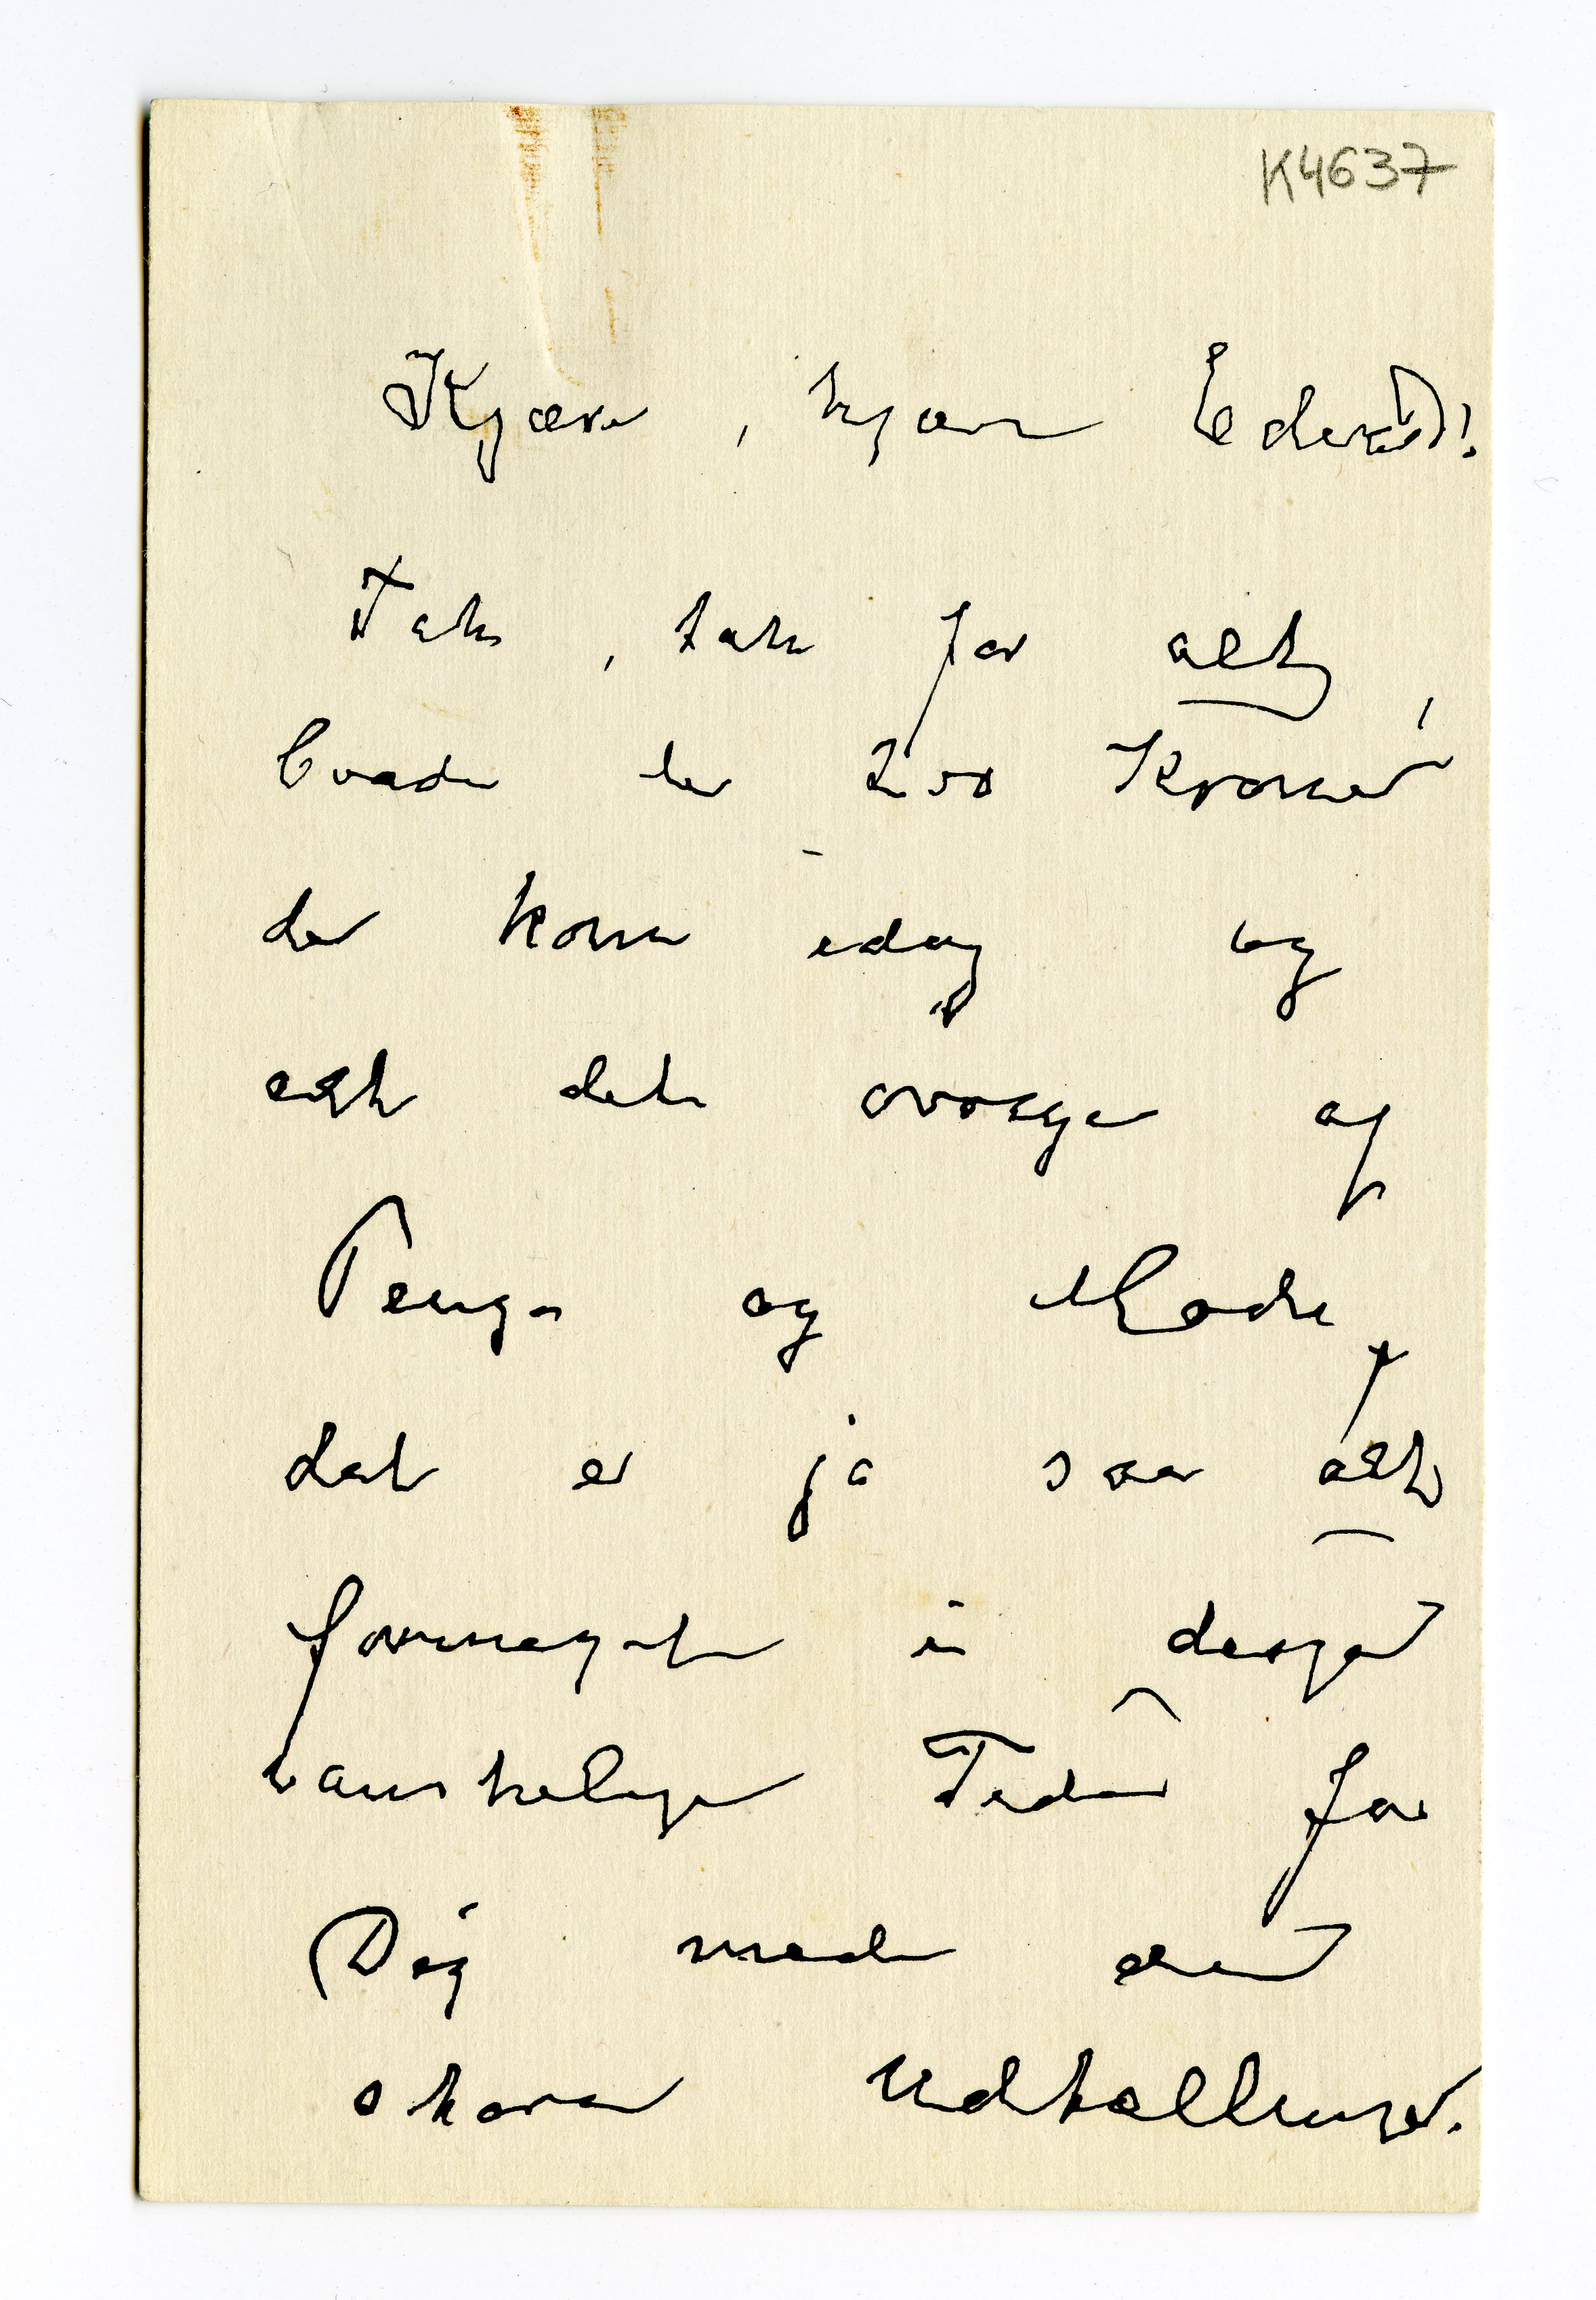 K4637
Kjære, kjære Edvard!
Tak, tak for alt,
baade de 200 Kroner
der kom idag og
alt det øvrige af
Penge og Mode,
det er ja saa alt
formeget i disse
vanskelige Tider for
Dig med din
store Udtællinger.